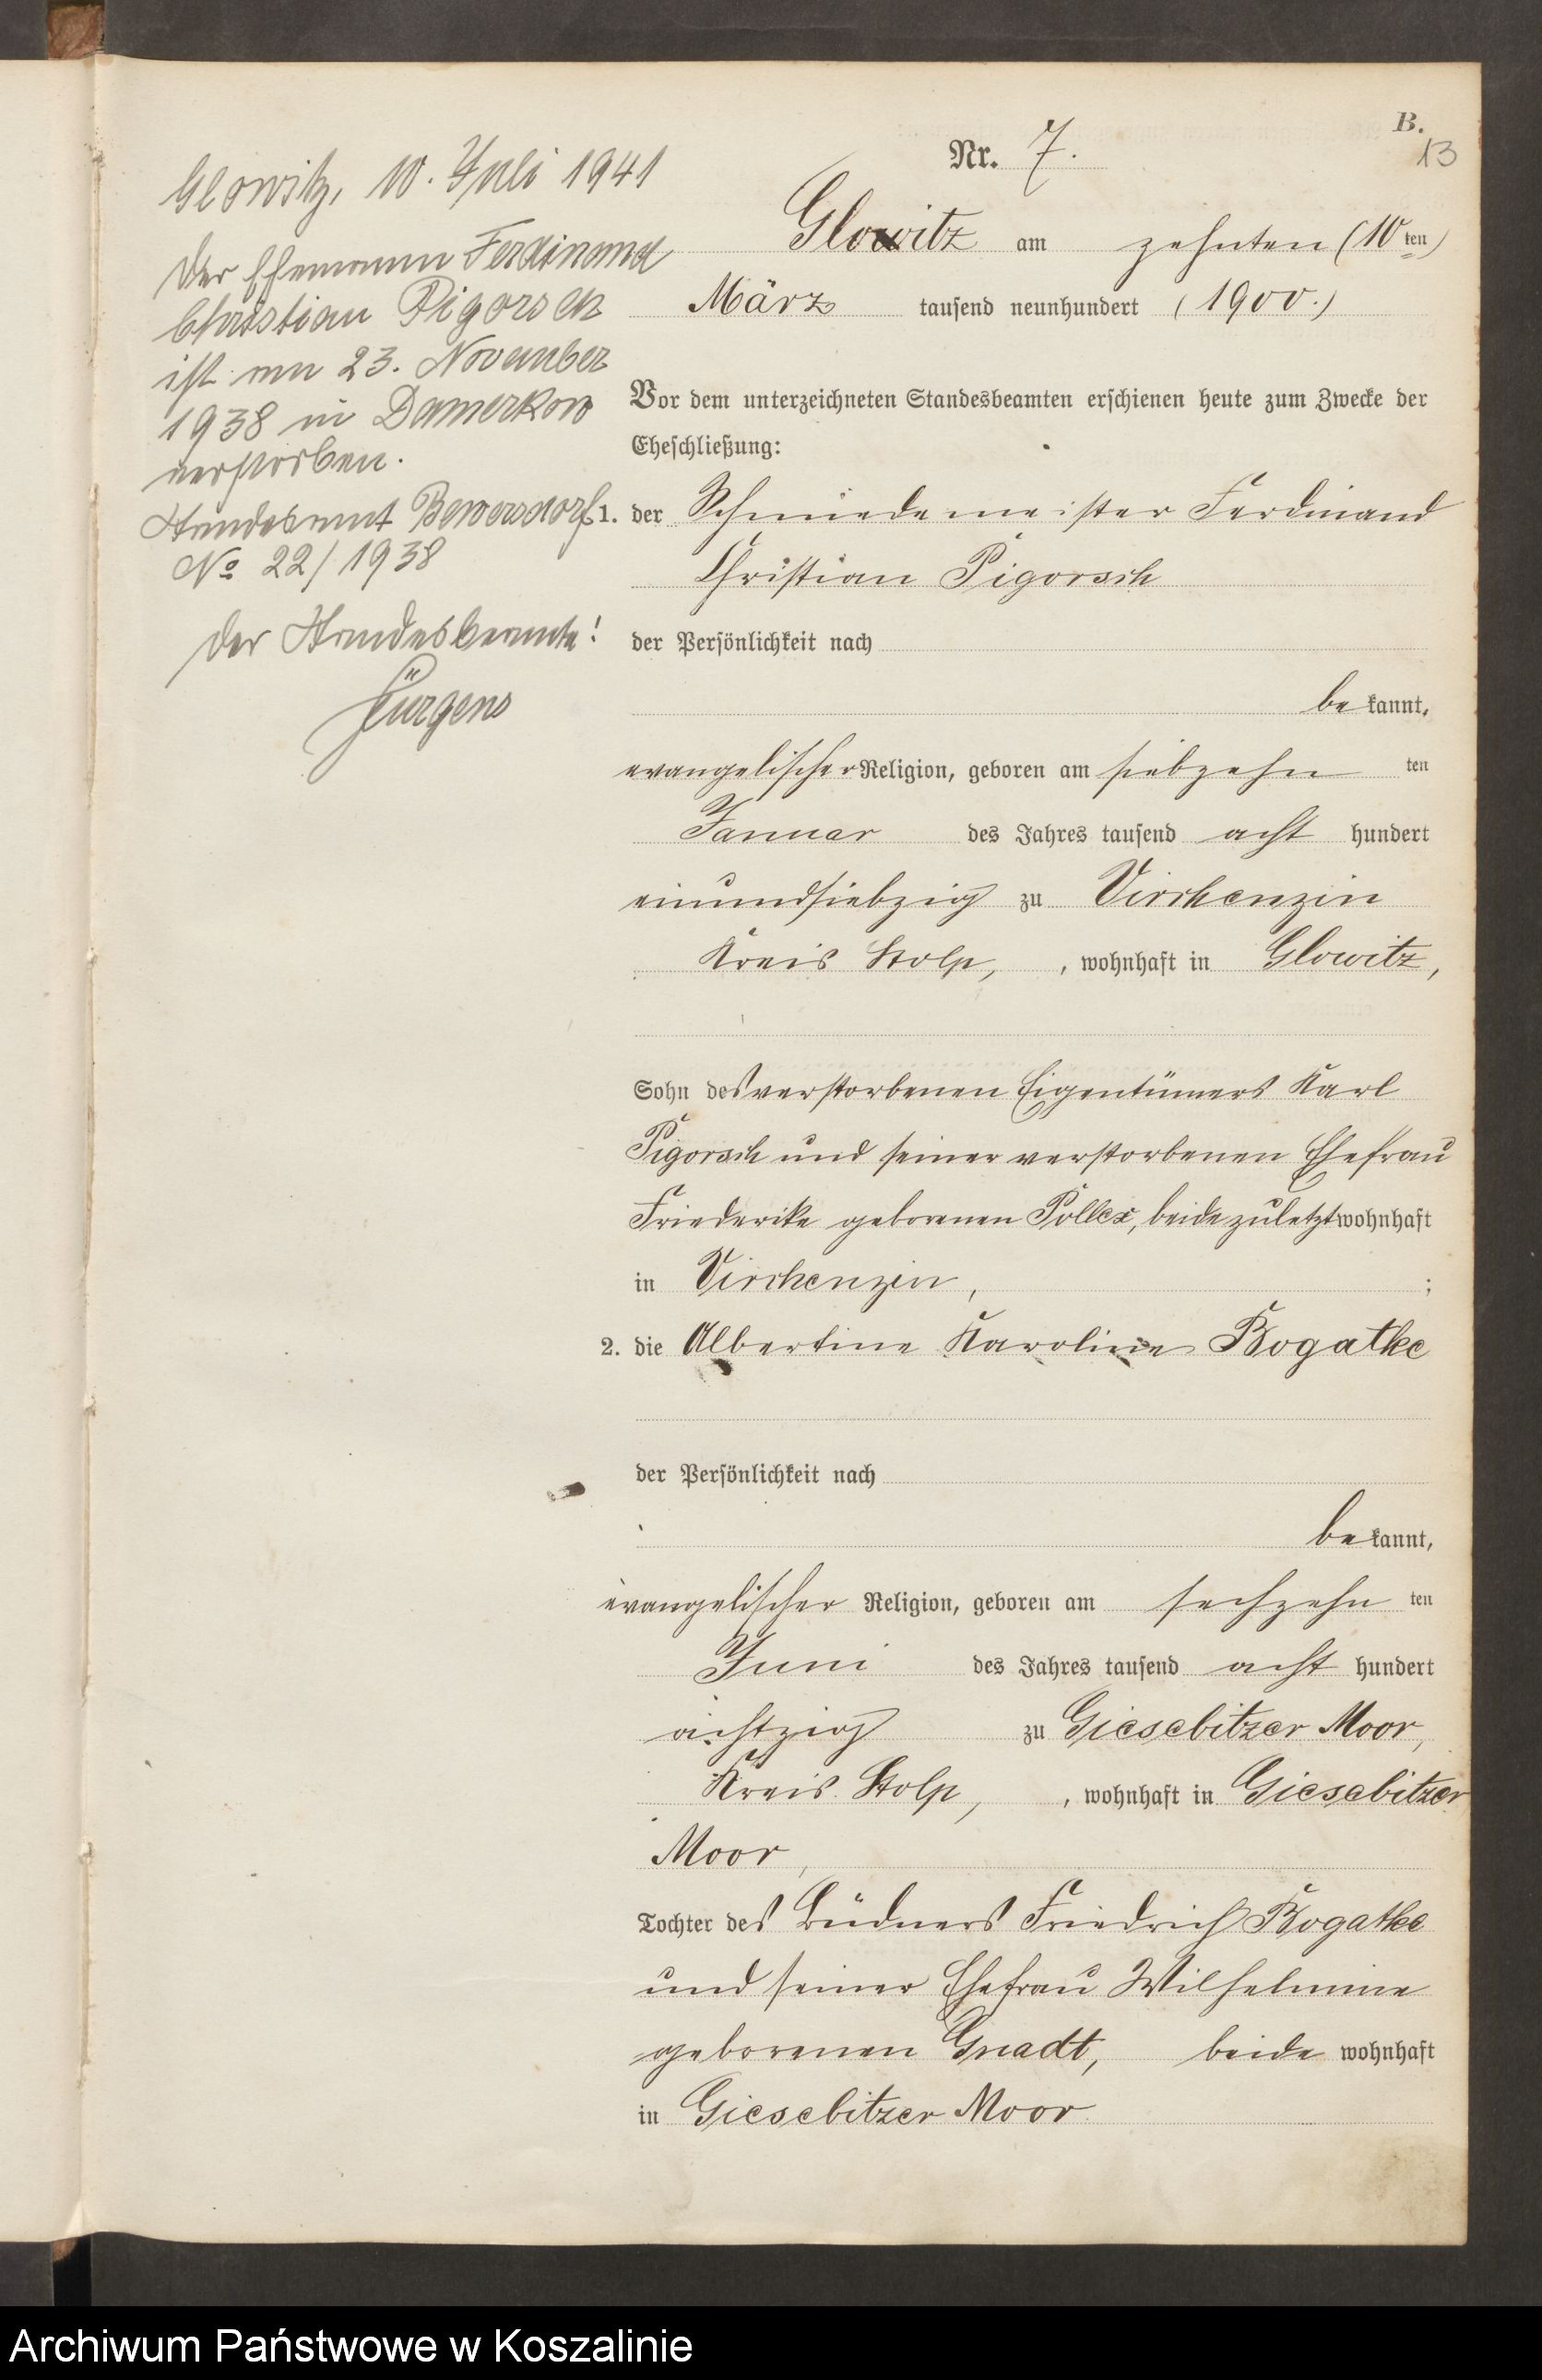 B.
13
Nr. 7.
Glowitz am zehnten (10ten)
März tausend neunhundert (1900.)
Vor dem unterzeichneten Standesbeamten erschienen heute zum Zwecke der
Eheschließung:
1. der Schmiedemeister Ferdinand
Christian Pigorsch
der Persönlichkeit nach
bekannt,
evangelischer Religion, geboren am siebzehn ten
Januar des Jahres tausend acht hundert
einundsiebzig zu Virchenzin
Kreis Stolp, , wohnhaft in Glowitz,
Sohn des verstorbenen Eigentümers Karl
Pigorsch und seiner verstorbenen Ehefrau
Friederike geborenen Pollex, beide zuletzt wohnhaft
in Virchenzin, ;
2. die Albertine Karoline Rogatke
der Persönlichkeit nach
bekannt,
evangelischer Religion, geboren am sechzehn ten
Juni des Jahres tausend acht hundert
achtzig zu Giesebitzer Moor,
Kreis Stolp, , wohnhaft in Giesebitzer
Moor,
Tochter des Büdners Friedrich Rogatke
und seiner Ehefrau Wilhelmine
geborenen Gnadt, beide wohnhaft
in Giesebitzer Moor
Glowitz, 10. Juli 1941
Der Ehemann Ferdinand
Christian Pigorsch
ist am 23. November
1938 in Damerkow
verstorben.
Standesamt Bewersdorf
No 22/1938
Der Standesbeamte!
Jürgens
Archiwum Państwowe w Koszalinie